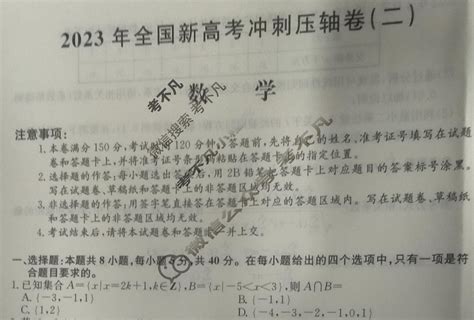 2023年全国新高考冲刺压轴卷(二)
数 学
注意事项:
1.本卷满分150分,考试时间120分钟。答题前,先将自己的姓名、准考证号填写在试题
卷和答题卡上,并将准考证号条形码粘贴在答题卡上的指定位置。
2.选择题的作答:每小题选出答案后,用2B铅笔把答题卡上对应题目的答案标号涂黑。
写在试题卷、草稿纸和答题卡上的非答题区域均无效。
3.非选择题的作答:用签字笔直接答在答题卡上对应的答题区域内。写在试题卷、草稿纸
和答题卡上的非答题区域均无效。
4.考试结束后,请将本试题卷和答题卡一并上交。
一、选择题:本题共8小题,每小题5分,共40分。在每小题给出的四个选项中,只有一项是符
合题目要求的。
1.已知集合A={x|x=2k+1,k∈Z},B={x|-5<x<3},则A∩B=
A.{-3,-1,1} B.{-1,1}
C.{1,2} D.{-4,-3,-2,-1,0,1}
考不凡
微信搜索